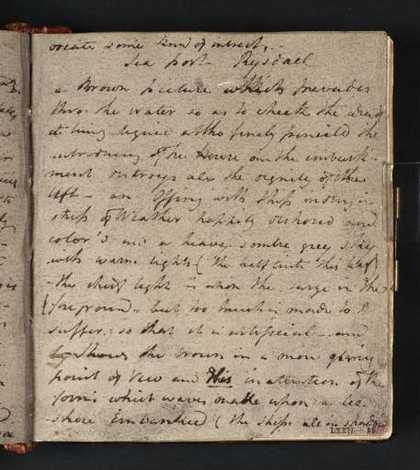 create some kind of interest,
Sea port - Rysdael
a Brown picture which pervades
thro the water so as to check the idea of
it being liquid altho finely pencil'd the
introducing of the House on the embark-
ment destroys all the dignity of the
left - an offing with Ship under
strip of Weather happily coloured and
color'd in a heavy sombre grey sky
with warm lights ( the half tints
the chief light is upon the surge in the
foreground - but too much is made to
suffer, so that it is artificial - and
shows the brown in a more glaring
point of View and His inattention of the
forms which waves make upon a lee
shore Embanked ( the ships all in shadow
LXXII